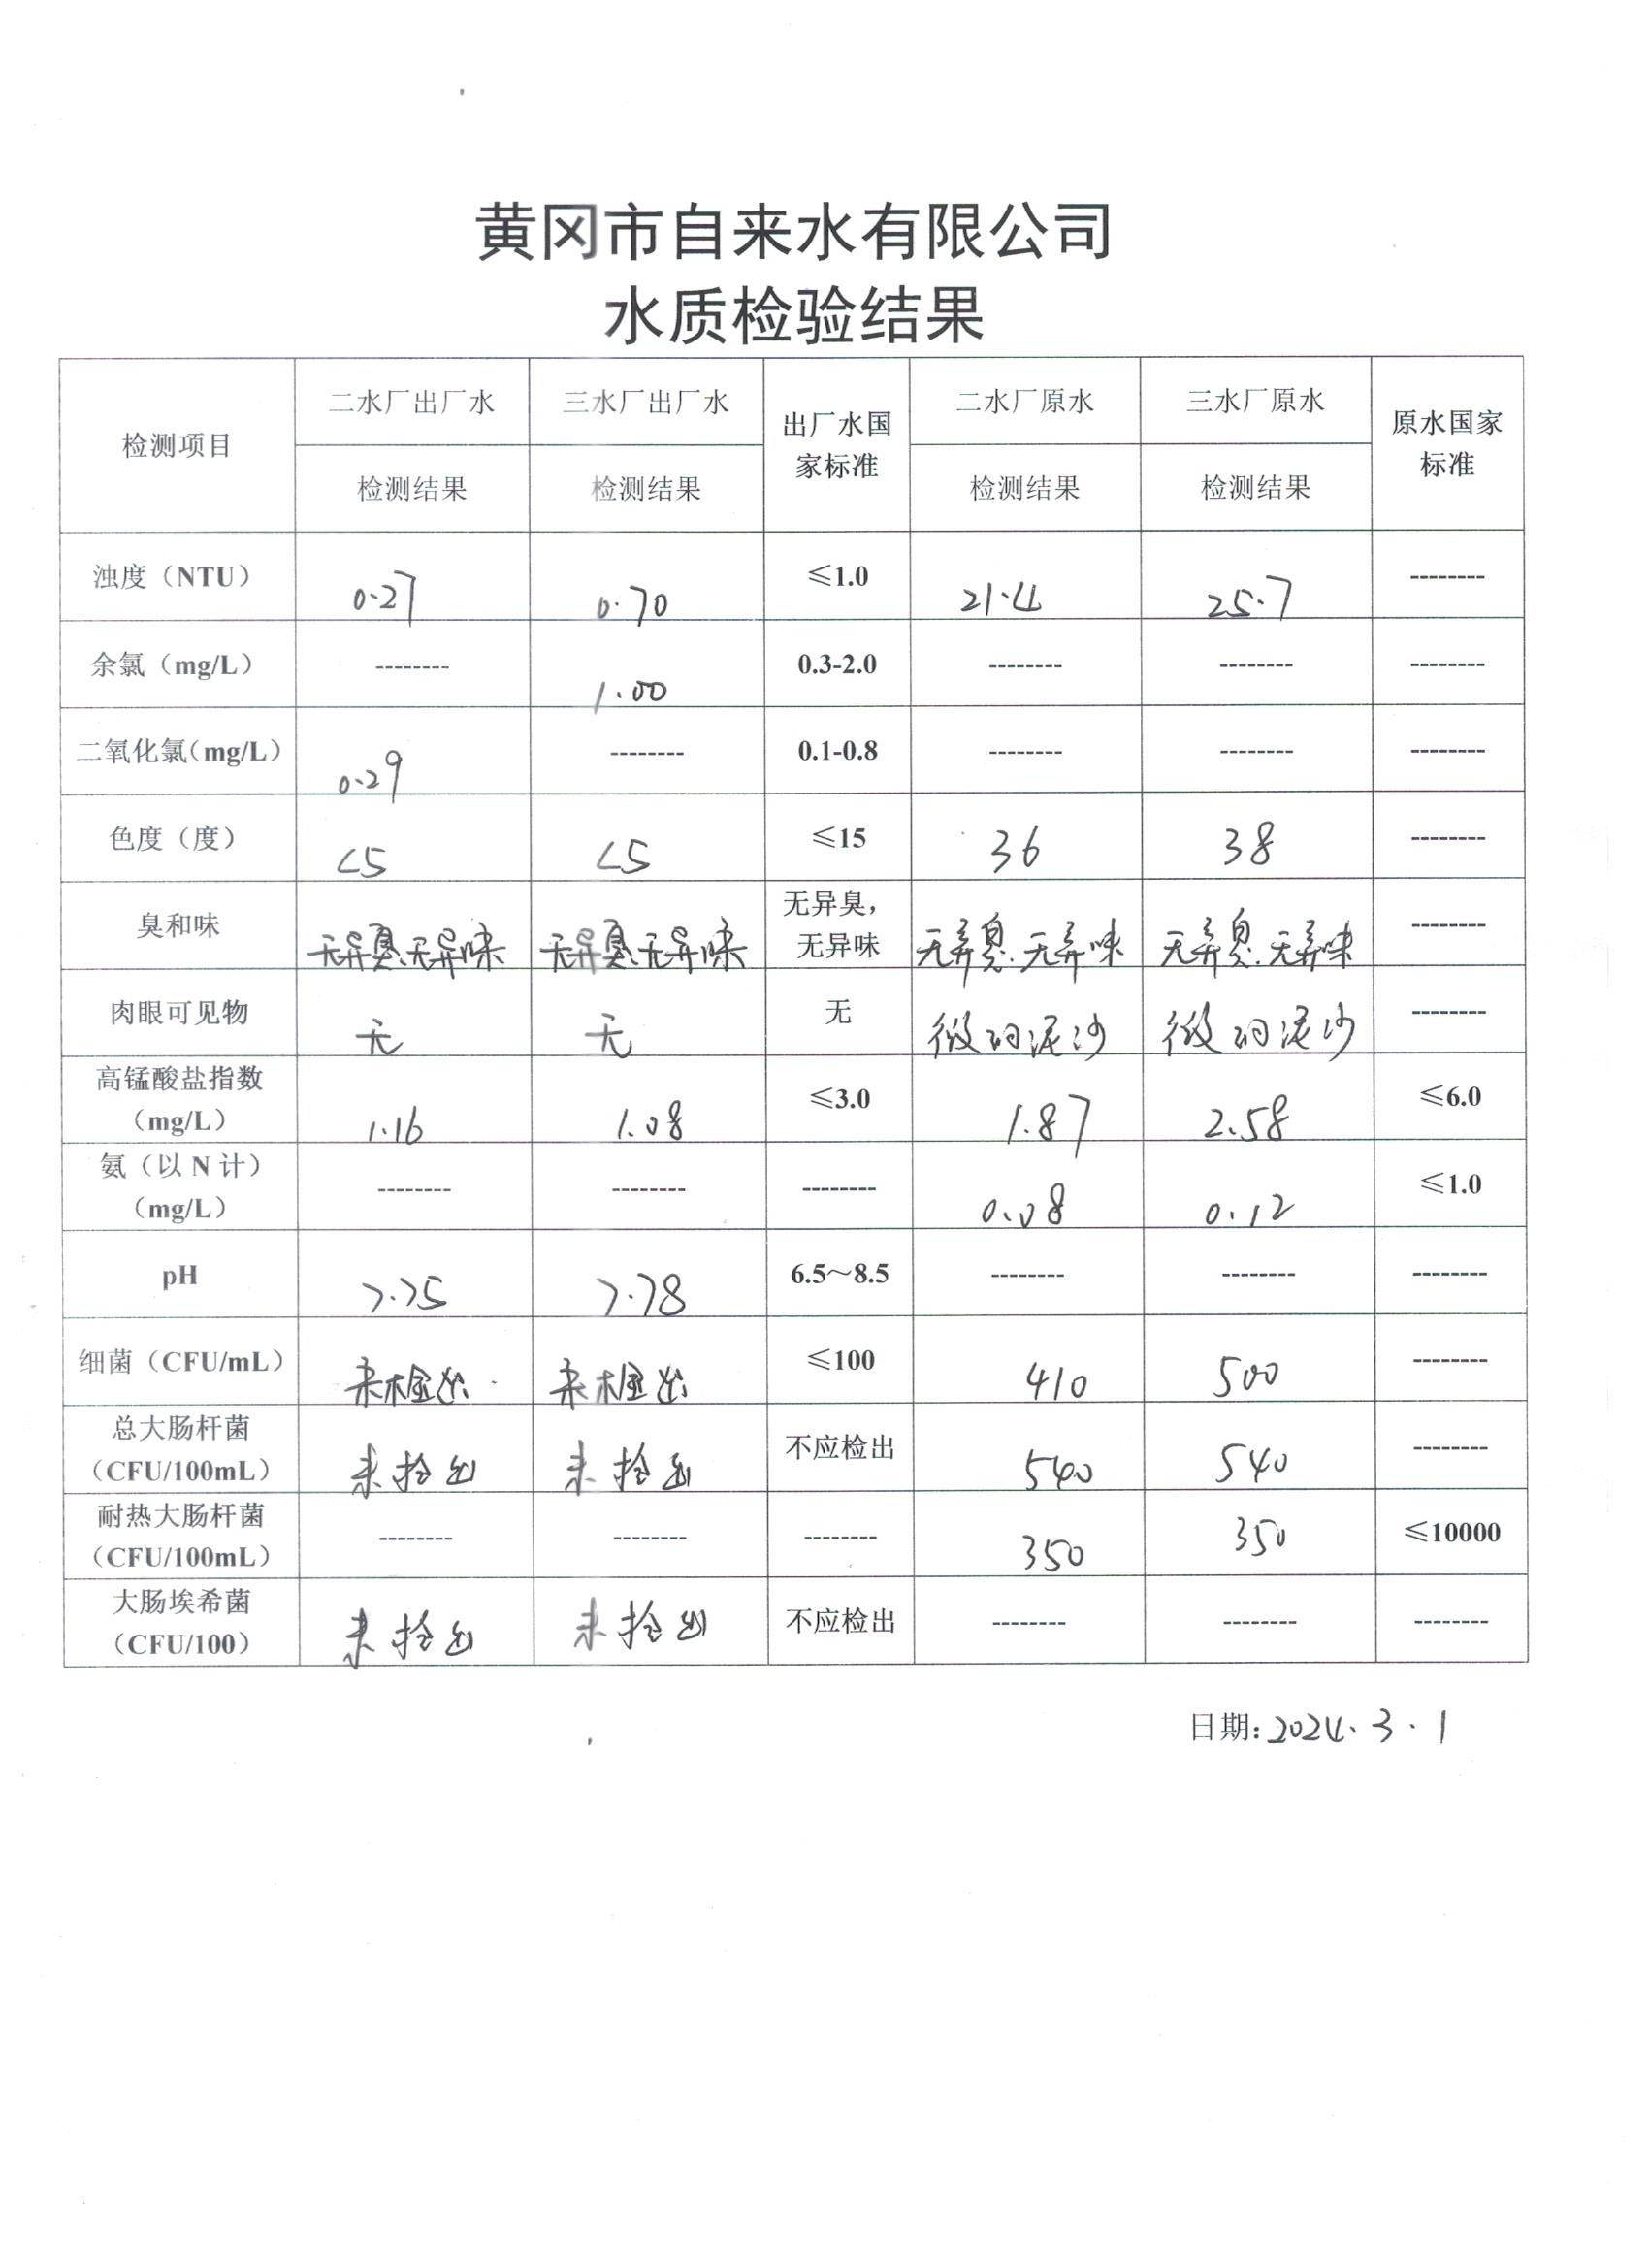 黄冈市自来水有限公司
水质检验结果
检测项目 二水厂出厂水 三水厂出厂水 出厂水国家标准 二水厂原水 三水厂原水 原水国家标准
检测结果 检测结果 检测结果 检测结果
浊度（NTU） 0.27 0.70 ≤1.0 21.4 25.7 --------
余氯（mg/L） -------- 1.00 0.3-2.0 -------- -------- --------
二氧化氯（mg/L） 0.29 -------- 0.1-0.8 -------- -------- --------
色度（度） <5 <5 ≤15 36 38 --------
臭和味 无异臭、无异味 无异臭、无异味 无异臭，无异味 无异臭.无异味 无异臭.无异味 --------
肉眼可见物 无 无 无 微的泥沙 微的泥沙 --------
高锰酸盐指数（mg/L） 1.16 1.08 ≤3.0 1.87 2.58 ≤6.0
氨（以 N 计）（mg/L） -------- -------- -------- 0.08 0.12 ≤1.0
pH 7.75 7.78 6.5～8.5 -------- -------- --------
细菌（CFU/mL） 未检出 未检出 ≤100 410 500 --------
总大肠杆菌（CFU/100mL） 未检出 未检出 不应检出 540 540 --------
耐热大肠杆菌（CFU/100mL） -------- -------- -------- 350 350 ≤10000
大肠埃希菌（CFU/100） 未检出 未检出 不应检出 -------- -------- --------
日期: 2024.3.1